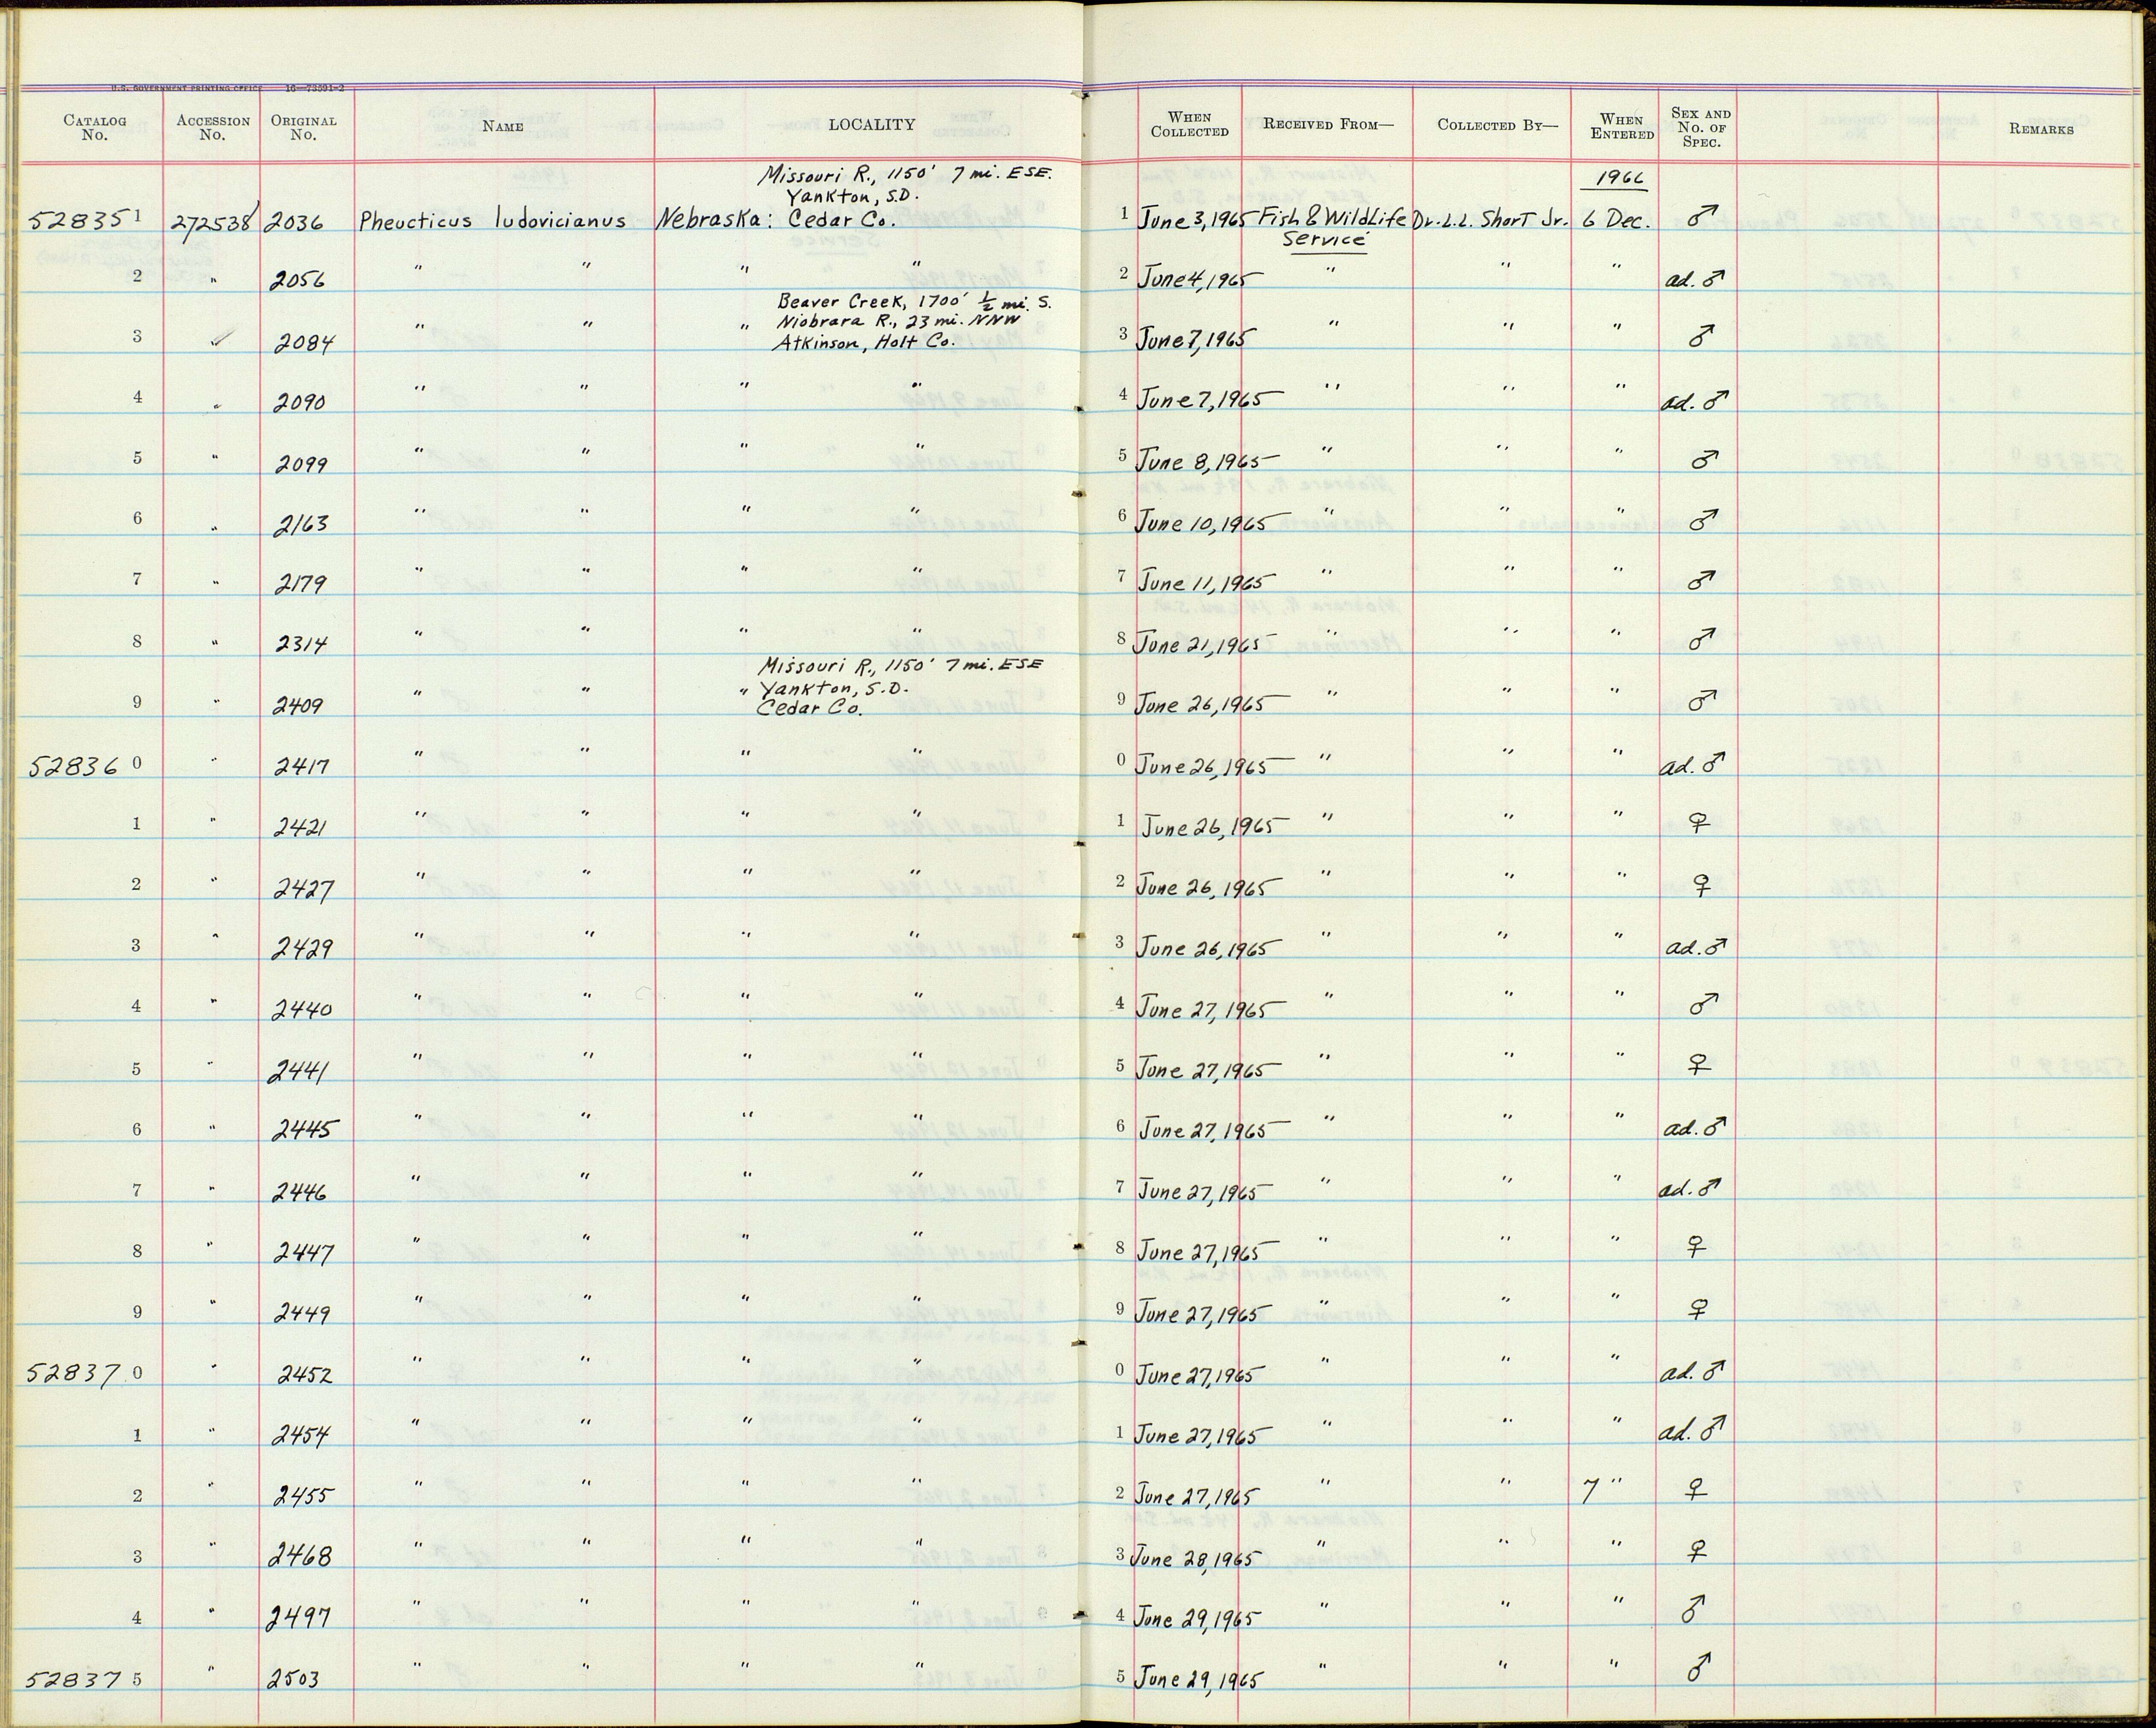 U.S. GOVERNMENT PRINTING OFFICE 16—73591-2
CATALOG No. ACCESSION No. ORIGINAL No. NAME LOCALITY WHEN COLLECTED RECEIVED FROM— COLLECTED BY— WHEN ENTERED SEX AND No. OF SPEC. REMARKS
Missouri R., 1150' 7 mi. ESE.
Yankton, S.D. 1966
52835 1 272538 2036 Pheucticus ludovicianus Nebraska: Cedar Co. 1 June 3, 1965 Fish & WildLife Dr. L.L. Short Jr. 6 Dec. ♂
Service
2 " 2056 " " " " 2 June 4, 1965 " " " ad. ♂
Beaver Creek, 1700' ½ mi. S.
" " " Niobrara R., 23 mi. NNW
3 " 2084 Atkinson, Holt Co. 3 June 7, 1965 " " " ♂
4 " 2090 " " " " 4 June 7, 1965 " " " ad. ♂
5 " 2099 " " " " 5 June 8, 1965 " " " ♂
6 " 2163 " " " " 6 June 10, 1965 " " " ♂
7 " 2179 " " " " 7 June 11, 1965 " " " ♂
8 " 2314 " " " " 8 June 21, 1965 " " " ♂
Missouri R., 1150' 7 mi. ESE
" " " Yankton, S.D.
9 " 2409 Cedar Co. 9 June 26, 1965 " " " ♂
52836 0 " 2417 " " " " 0 June 26, 1965 " " " ad. ♂
1 " 2421 " " " " 1 June 26, 1965 " " " ♀
2 " 2427 " " " " 2 June 26, 1965 " " " ♀
3 " 2429 " " " " 3 June 26, 1965 " " " ad. ♂
4 " 2440 " " " " 4 June 27, 1965 " " " ♂
5 " 2441 " " " " 5 June 27, 1965 " " " ♀
6 " 2445 " " " " 6 June 27, 1965 " " " ad. ♂
7 " 2446 " " " " 7 June 27, 1965 " " " ad. ♂
8 " 2447 " " " " 8 June 27, 1965 " " " ♀
9 " 2449 " " " " 9 June 27, 1965 " " " ♀
52837 0 " 2452 " " " " 0 June 27, 1965 " " " ad. ♂
1 " 2454 " " " " 1 June 27, 1965 " " " ad. ♂
2 " 2455 " " " " 2 June 27, 1965 " " 7 " ♀
3 " 2468 " " " " 3 June 28, 1965 " " " ♀
4 " 2497 " " " " 4 June 29, 1965 " " " ♂
52837 5 " 2503 " " " " 5 June 29, 1965 " " " ♂